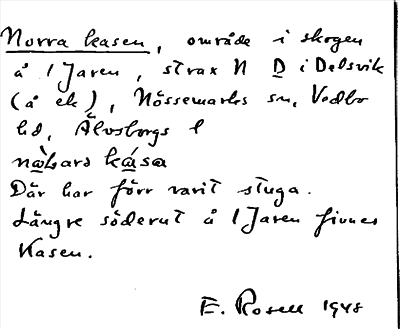 Norra kasen, område i skogen
å 1 Jaren, strax N D i Delsvik
(å ek), Nössemarks sn, Vedbo
hd, Älvsborgs l
kása
Där har förr varit stuga.
Längre söderut å 1 Jaren finnes
Kasen.
E. Rosell 1948